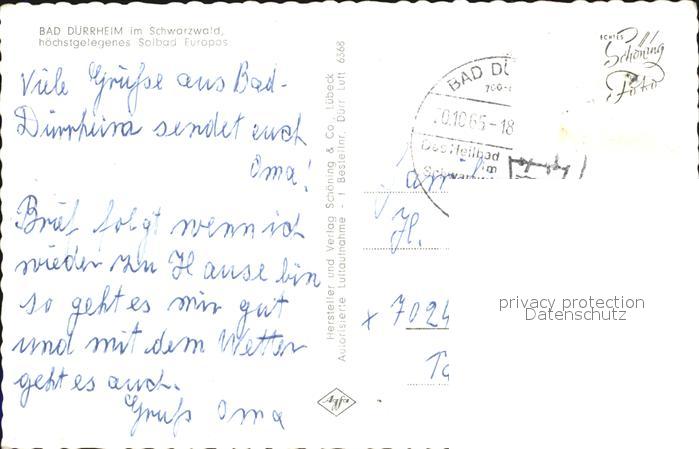 BAD DÜRRHEIM im Schwarzwald,
höchstgelegenes Solbad Europas
Viele Grüße aus Bad-
Dürrheim sendet euch
Oma!
Brief folgt wenn ich
wieder zu Hause bin
so geht es mir gut
und mit dem Wetter
geht es auch.
Gruß Oma
Hersteller und Verlag Schöning & Co., Lübeck
Autorisierte Luftaufnahme - 1 Bestellnr. Dürr Luft 6368
Agfa
ECHTES
Schöning
Foto
BAD DÜ
.0.10.65-18
Das Heilbad
im
Schwarzw
Famil
H.
x 7024
privacy protection
Datenschutz